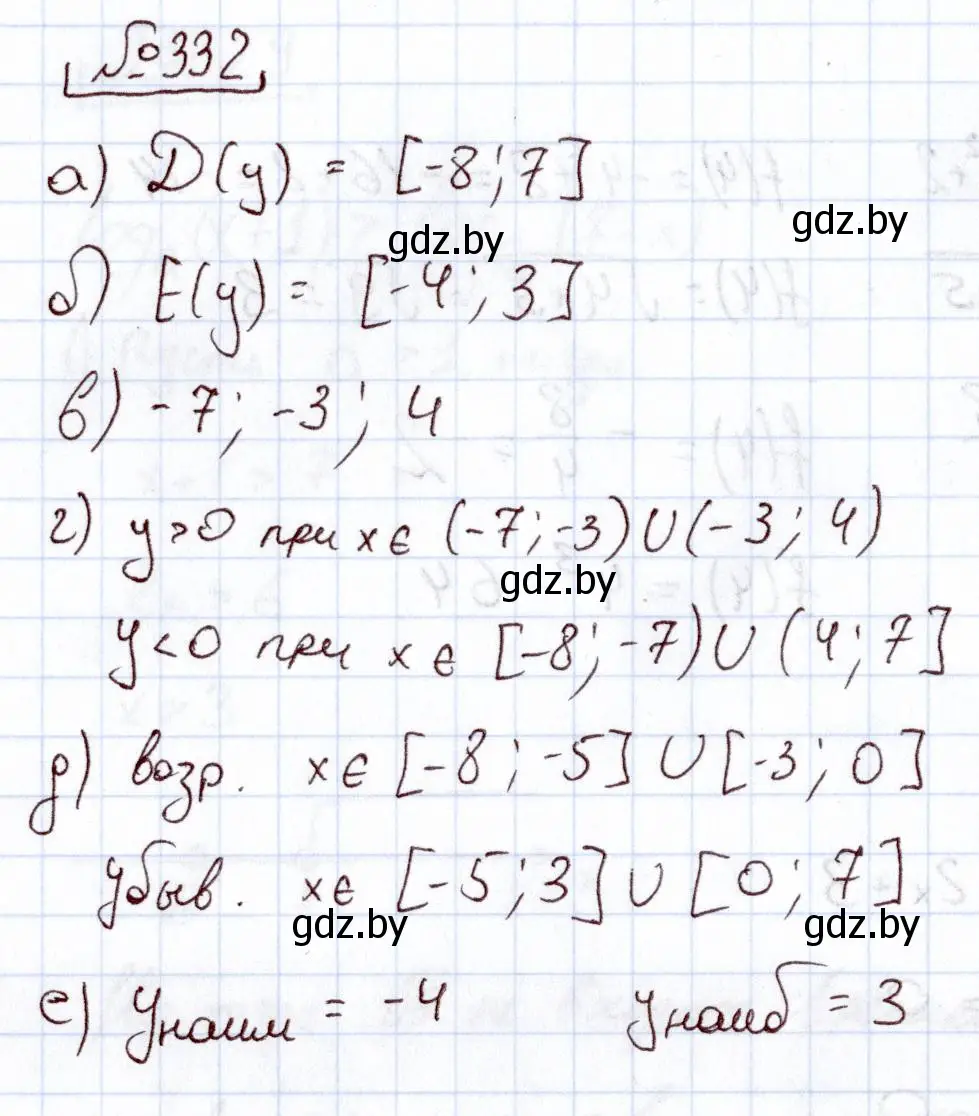 №332
а) D(y) = [-8; 7]
gdz.by
gdz.by
б) E(y) = [-4; 3]
в) -7; -3; 4
г) y>0 при x ∈ (-7; -3) U (-3; 4)
gdz.by
y<0 при x ∈ [-8; -7) U (4; 7]
д) возр. x ∈ [-8; -5] U [-3; 0]
убыв. x ∈ [-5; 3] U [0; 7]
gdz.by
gdz.by
е) yнаим = -4 yнаиб = 3